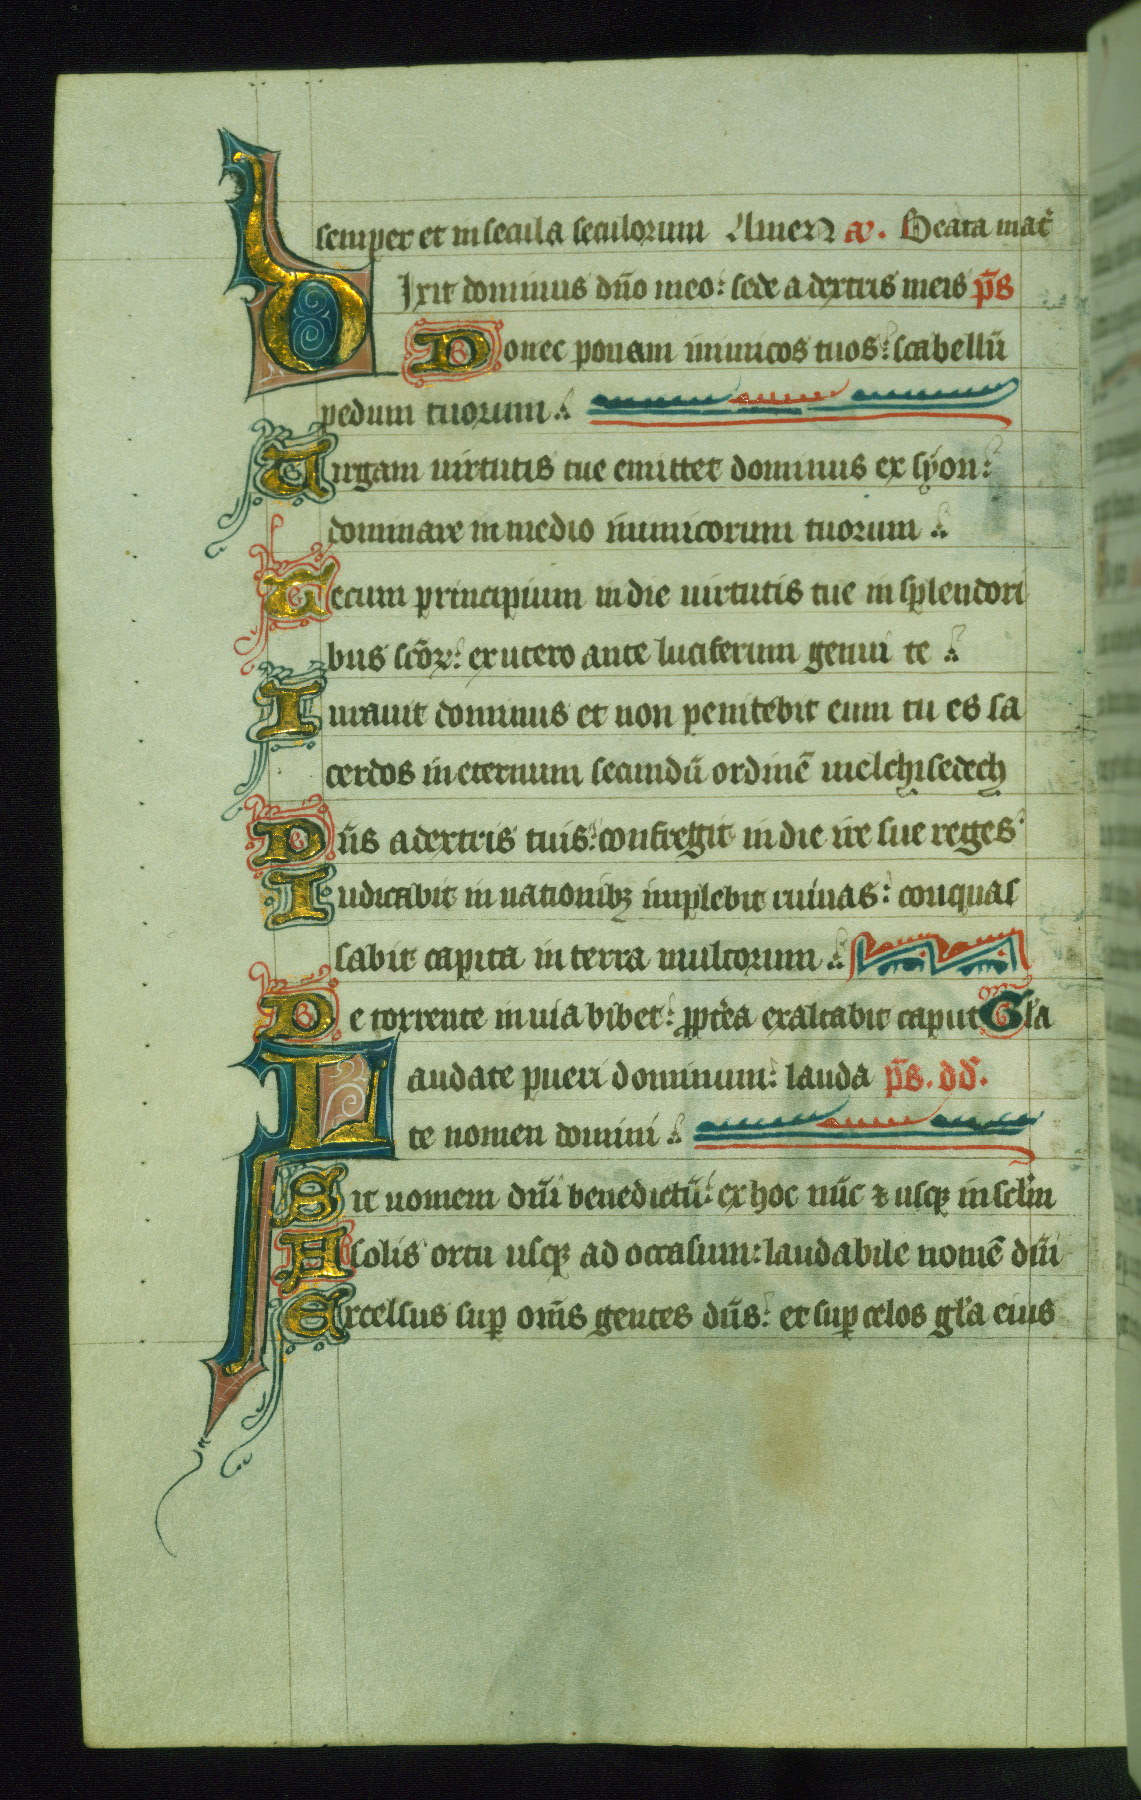 semper et in secula seculorum Amen a᷑. Beata mat᷑
Dixit dominus dn̄o meo: sede a dextris meis p̄s
Donec ponam inimicos tuos: scabellū
pedum tuorum.
Uirgam uirtutis tue emittet dominus ex syon:
dominare in medio inimicorum tuorum.
Tecum principium in die uirtutis tue in splendori
bus sc̄oꝝ: ex utero ante luciferum genui te
Iurauit dominus et non penitebit eum tu es sa
cerdos in eternum secundū ordinē melchisedech
Dn̄s a dextris tuis: confregit in die ire sue reges
Iudicabit in nationibꝫ implebit ruinas: conquas
sabit capita in terra multorum.
De torrente in uia bibet: ꝓpt̄ea exaltabit caput Gl̄a
Laudate pueri dominum: lauda p̄s. dd̄.
te nomen domini.
Sit nomem dn̄i benedictū: ex hoc nūc ⁊ usqꝫ in sc̄lm
A solis ortu usqꝫ ad occasum: laudabile nomē dn̄i
Excelsus suꝑ om̄s gentes dn̄s: et suꝑ celos gl̄a eius